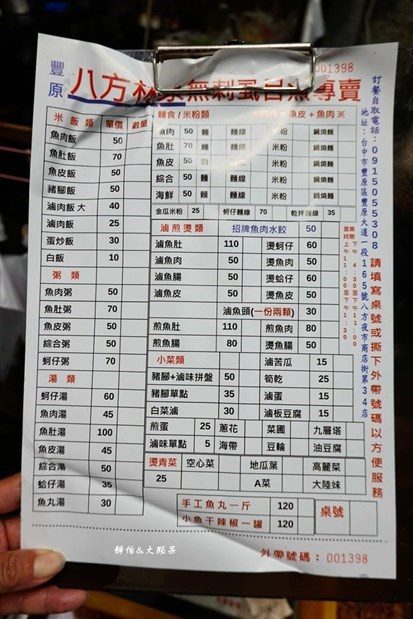 001398
豐原
八方 無刺虱目魚專賣
訂餐自取電話:0915055308
地址:台中市豐原區豐原大道一段165號八方夜市商店街第34店
請填寫桌號或撕下外帶號碼以方便服務
米飯類 單價 數量
魚肉飯 50
魚肚飯 70
魚皮飯 50
豬腳飯 50
滷肉飯大 40
滷肉飯 25
蛋炒飯 30
白飯 10
粥類
魚肉粥 50
魚肚粥 70
魚皮粥 50
綜合粥 50
蚵仔粥 70
湯類
蚵仔湯 60
魚肉湯 45
魚肚湯 100
魚皮湯 45
綜合湯 50
蛤仔湯 35
魚丸湯 30
麵食/米粉類
魚皮+魚肉※
魚肉 50 麵 麵線 米粉 鍋燒麵
魚肚 70 麵 麵線 米粉 鍋燒麵
魚皮 50 麵 麵線 米粉 鍋燒麵
綜合 50 麵 麵線 米粉 鍋燒麵
海鮮 50 麵 麵線 米粉 鍋燒麵
金瓜米粉 25 蚵仔麵線 70 乾拌麵線 35
滷煎燙類 招牌魚肉水餃 50
滷魚肚 110 燙蚵仔 60
滷魚肉 50 燙魚肉 50
滷魚腸 50 燙蛤仔 60
滷魚皮 50 燙魚皮 50
滷魚頭(一份兩顆) 30
煎魚肚 110 煎魚肉 80
煎魚腸 80 燙魚腸 50
小菜類 滷苦瓜 15
豬腳+滷味拼盤 50 筍乾 25
豬腳單點 35 滷蛋 15
白菜滷 30 滷板豆腐 15
煎蛋 25 蔥花 菜圃 九層塔
滷味單點 5 海帶 豆輪 油豆腐
燙青菜 空心菜 地瓜葉 高麗菜
25 A菜 大陸妹
手工魚丸一斤 120 桌號
小魚干辣椒一罐 120
外帶號碼: 001398